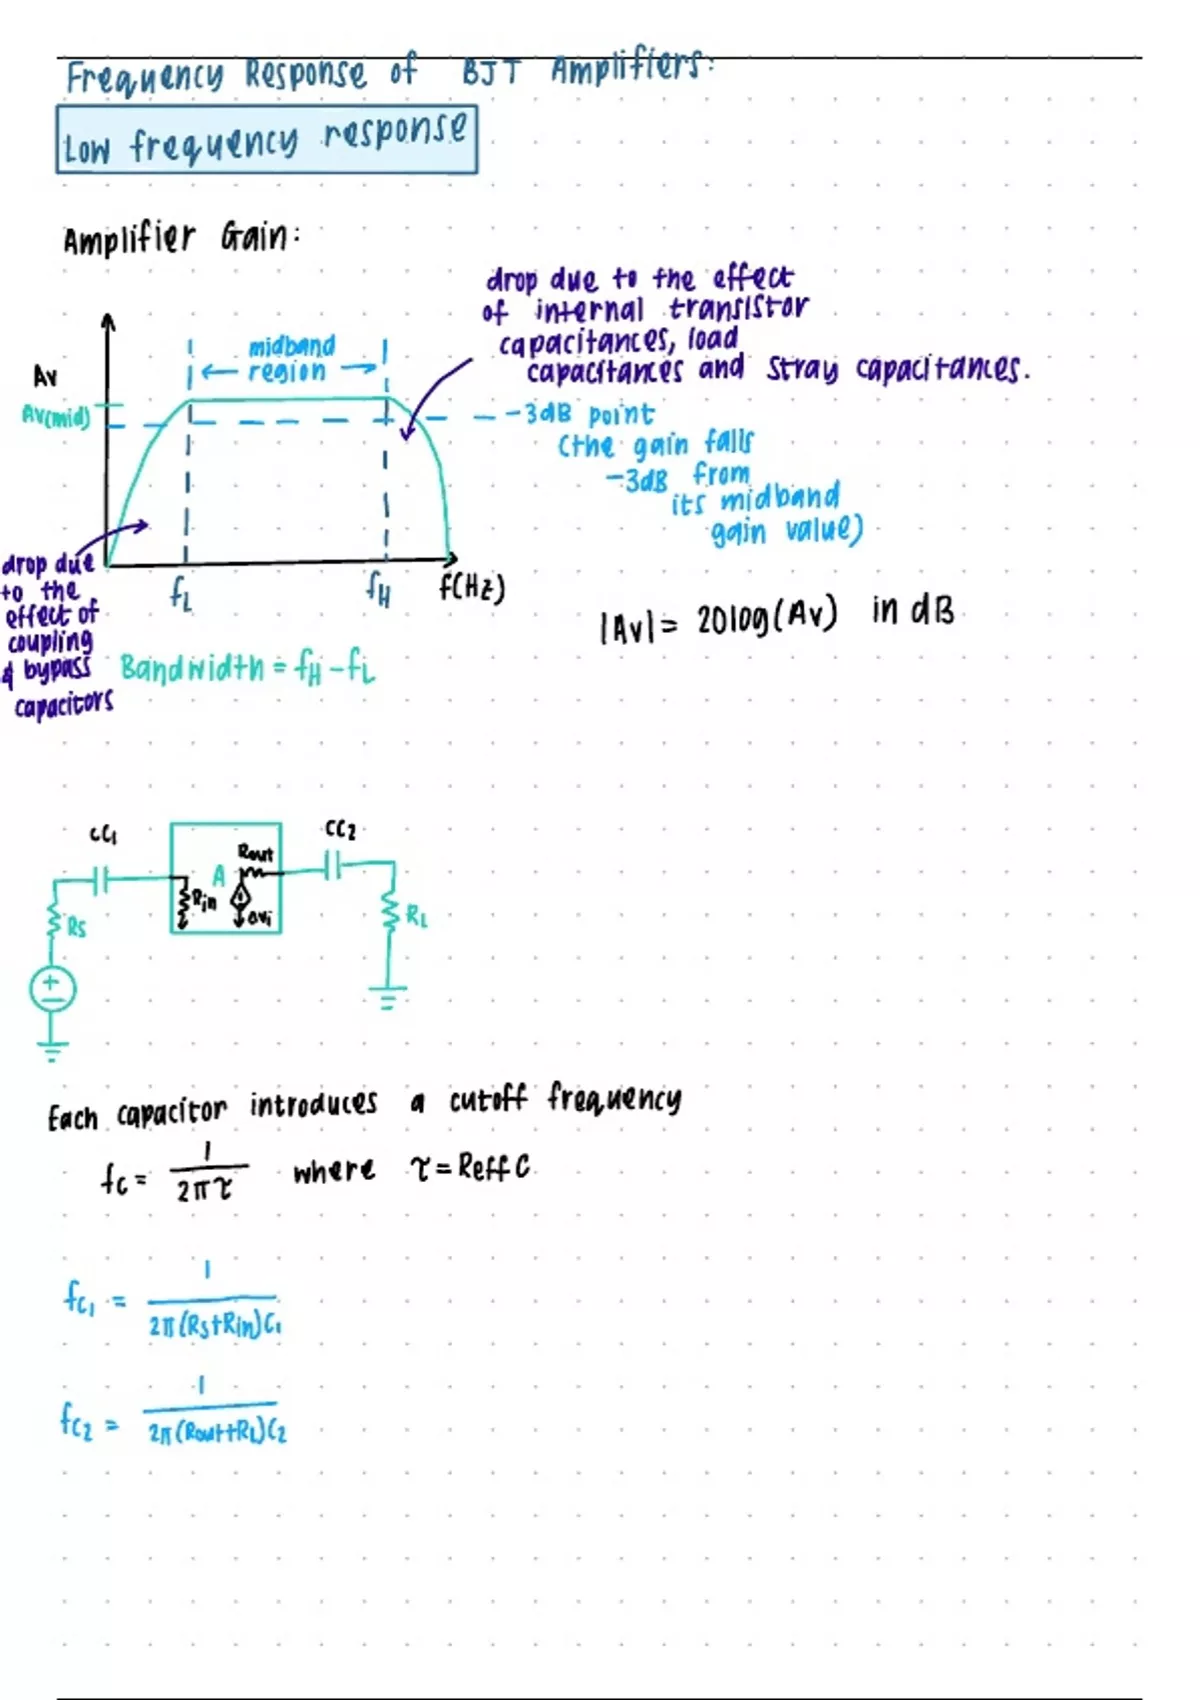 Frequency Response of BJT Amplifiers:
Low frequency response
Amplifier Gain:
drop due to the effect
of internal transistor
capacitances, load
capacitances and stray capacitances.
midband
region
Av
Av(mid)
-3dB point
(the gain falls
-3dB from
its midband
gain value)
drop due
to the
effect of
coupling
& bypass
capacitors
fL
fH
f(Hz)
|Av| = 20log(Av) in dB
Bandwidth = fH - fL
CC1
CC2
Rout
A
Rin
avi
Rs
RL
+
−
Each capacitor introduces a cutoff frequency
fc = 1/2πτ where τ = Reff C
fc1 = 1/2π(Rs+Rin)C1
fc2 = 1/2π(Rout+RL)C2